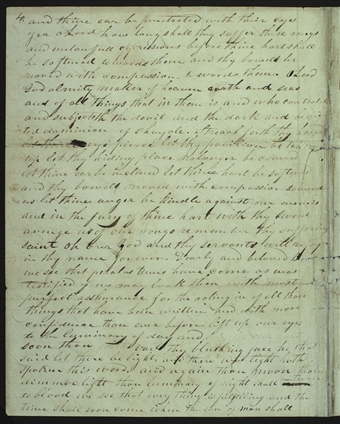 & and thine ear be penetrated with their cyes
yea o Lord how long shall they suffer these rongs
and unlawfull oppressions before thine hart shall
be softened towards them and thy bowels be
moved with compassion to words them. O Lord
God almity maker of heaven earth and seas
and of all things that in them is and who controleth
and subjecteth the devil and the dark and
dominion of shayole. Streach forth thy
eye pierce let thy pavilion be taken
up let thy hiding place no longer be covered
let thine ear be inclined let thine hart be softened
and thy bowels moved with compassion toward
us let thine anger be kindle against our enemis
and in the fury of thine hart with thy sword
avenge us of our rongs remember thy suffering
saint oh our God and thy servants will rejoice
in thy name for ever. Dearly and beloved
we see that perelas times have come as was
testified of we may look then with most
purfect asshurance for the roling in of all those
things that have been written and with more
confidence than ever before lift up our eyes
to the luminary of day and
soon thou vail thy blushing face he that
said let there be light, and there was light hath
spoken this word. and again thou moon thou
dimmer light thou luminary of night shall
to blood we see that every thing is fulfilling and the
time shall soon come when the son of man shall